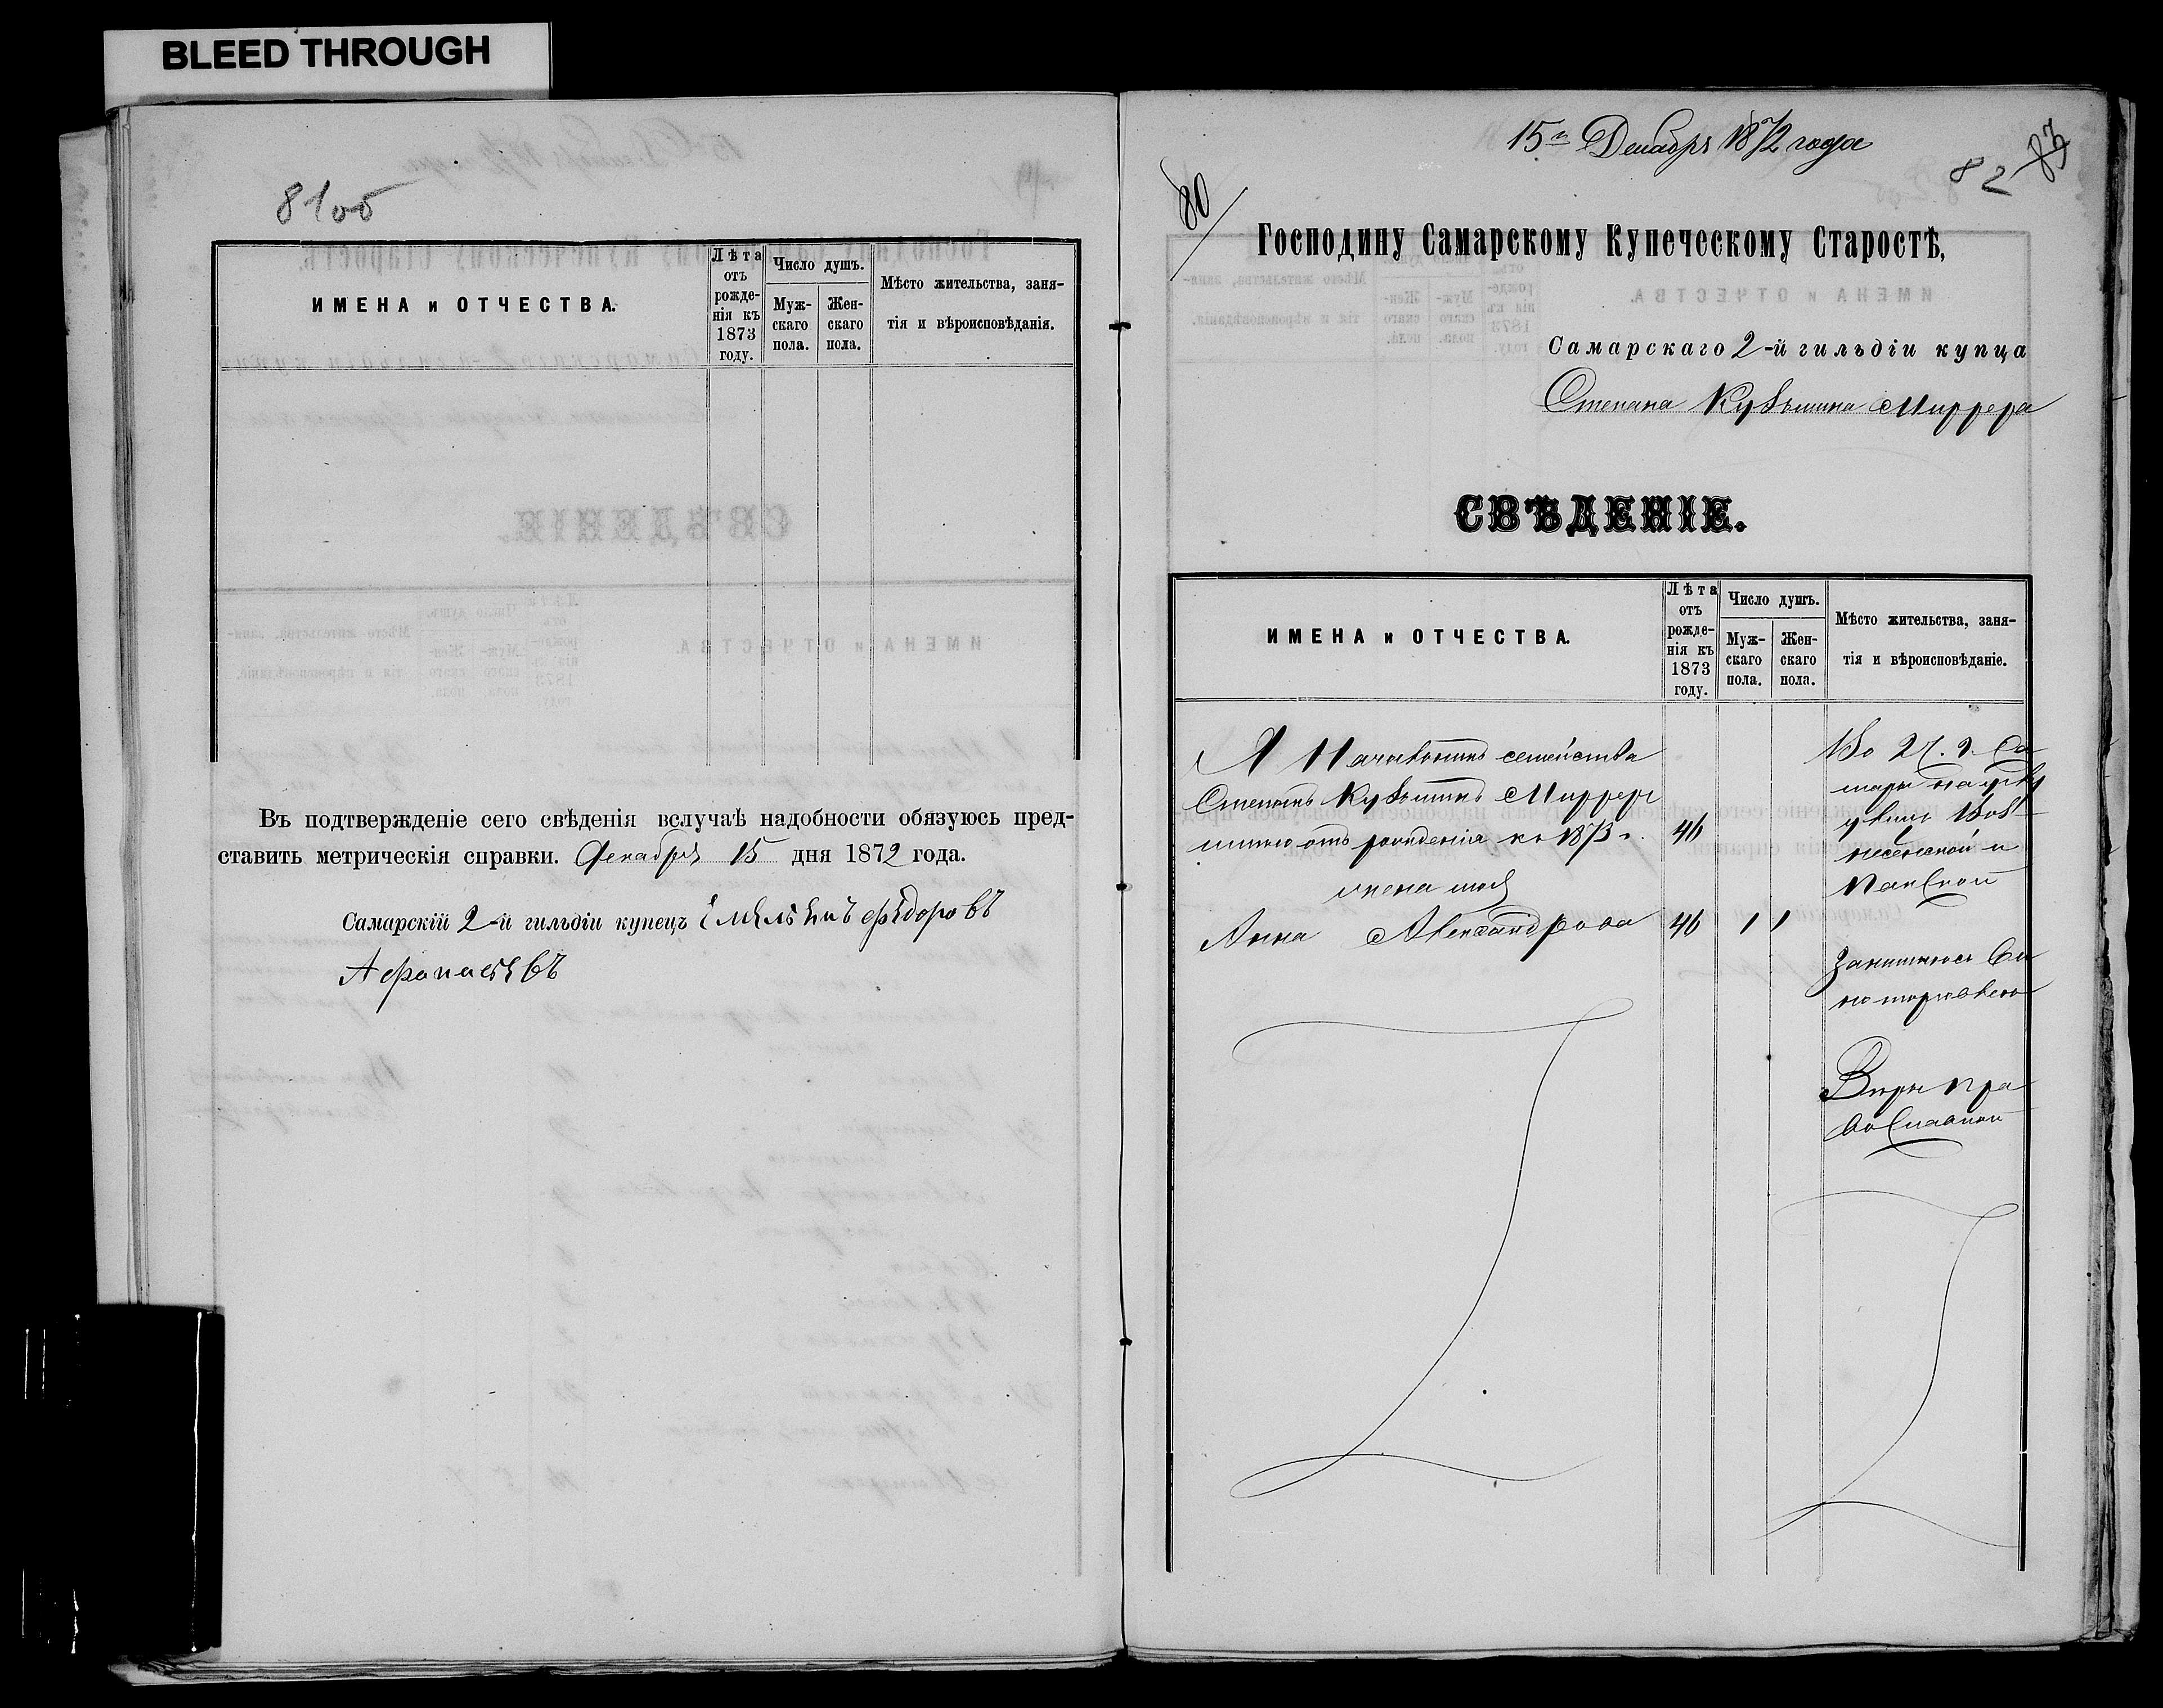 BLEED THROUGH
81об
ИМЕНА и ОТЧЕСТВА.
Лѣта отъ рожде-нія къ 1873 году.
Число душъ.
Муж-скаго пола.
Жен-скаго пола.
Мѣсто жительства, заня-
тія и вѣроисповѣданія.
Въ подтвержденіе сего свѣденія вслучаѣ надобности обязуюсь пред-
ставить метрическія справки. Декабря 15 дня 1872 года.
Самарскій 2-й гильдіи купецъ Емельянъ Федоровъ
Афанасьевъ
15 Декабря 1872 года
80
82 83
Господину Самарскому Купеческому Старостѣ,
Самарскаго 2-й гильдіи купца
Степана Кузьмина
СВѢДЕНІЕ.
ИМЕНА и ОТЧЕСТВА.
Лѣта отъ рожде-нія къ 1873 году.
Число душъ.
Муж-скаго пола.
Жен-скаго пола.
Мѣсто жительства, заня-
тія и вѣроисповѣданіе.
семейства
Степанъ Кузьминъ
отъ рожденія къ 1873 г. 46
жена моя
Анна Александрова 46 1 1
Во 2й. ч. Са
мары на углу
улицъ Воз
несенской и
Занимаюсь
Вѣры Пра
вославной